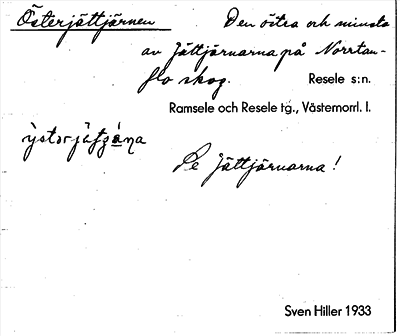 Österjättjärnen
Den östra och minsta
av Jättjärnarna på Norrtan-
flo skog.
Resele s:n.
Ramsele och Resele tg., Västernorrl. l.
Se Jättjärnarna!
Sven Hiller 1933